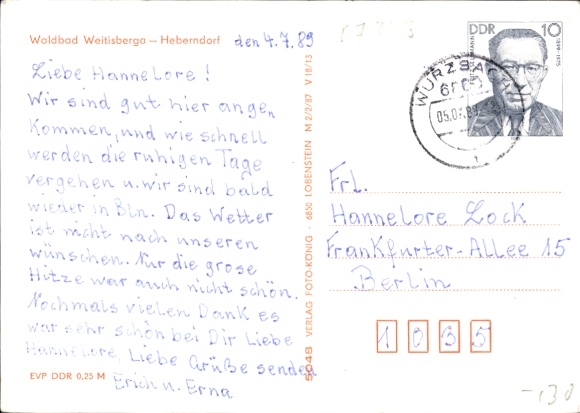 Waldbad Weitisberga – Heberndorf
den 4.7.89
Liebe Hannelore!
Wir sind gut hier angen
Kommen, und wie schnell
werden die ruhigen Tage
vergehen u. wir sind bald
wieder in Bln. Das Wetter
ist nicht nach unseren
wünschen. Nur die grose
Hitze war auch nicht schön.
Nochmals vielen Dank es
war sehr schön bei Dir Liebe
Hannelore, Liebe Grüße senden
Erich u. Erna
EVP DDR 0,25 M
5904B VERLAG FOTO-KÖNIG · 6850 LOBENSTEIN M 2/2/87 V 18/13
DDR 10
1899-1975
WURZBACH
05.07.89
1
Frl.
Hannelore Lock
Frankfurter-Allee 15
Berlin
1035